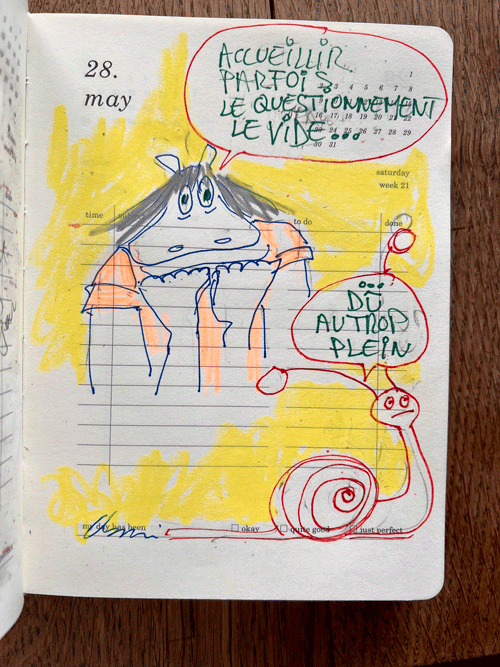 28.
may
ACCUEILLIR
PARFOIS
LE QUESTIONNEMENT
LE VIDE...
1
8
15
16 17 18 19 20 21 22
24 25 26 27 28 29
30 31
saturday
week 21
time
to do
done
...
DÛ
AU TROP
PLEIN
my day has been
okay
quite good
just perfect